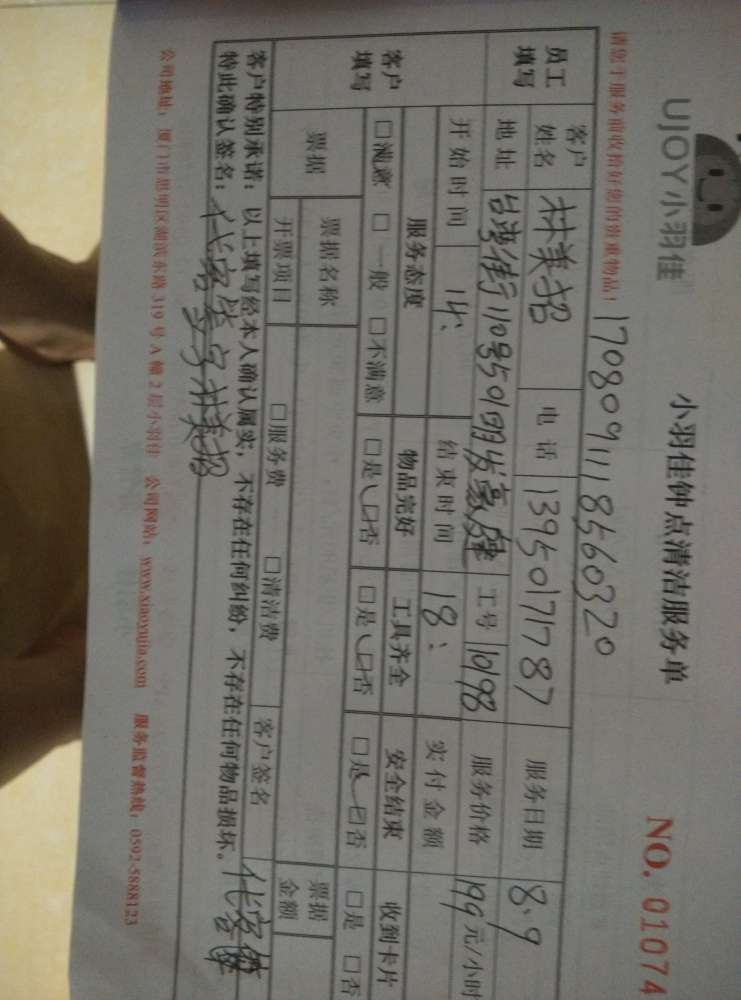 UJOY小羽佳
小羽佳钟点清洁服务单
NO. 01074
请您于服务前收拾好您的贵重物品！
17080911118560320
员工填写
客户姓名 林美招 电话 13950171787 服务日期 8.9
地址 台湾街110号501明发豪庭 工号 10198 服务价格 199元/小时
开始时间 14: 结束时间 18: 实付金额
客户填写
服务态度 物品完好 工具齐全 安全结束 收到卡片
□满意 □一般 □不满意 □是 □否 □是 □否 □是 □否 □是 □否
票据 票据名称 票据金额
开票项目 □服务费 □清洁费 客户签名 代客签
客户特别承诺：以上填写经本人确认属实，不存在任何纠纷，不存在任何物品损坏。
特此确认签名：代客签字林美招
公司地址：厦门市思明区湖滨东路319号A幢2层小羽佳 公司网站：www.xiaoyujia.com 服务监督热线：0592-5888123